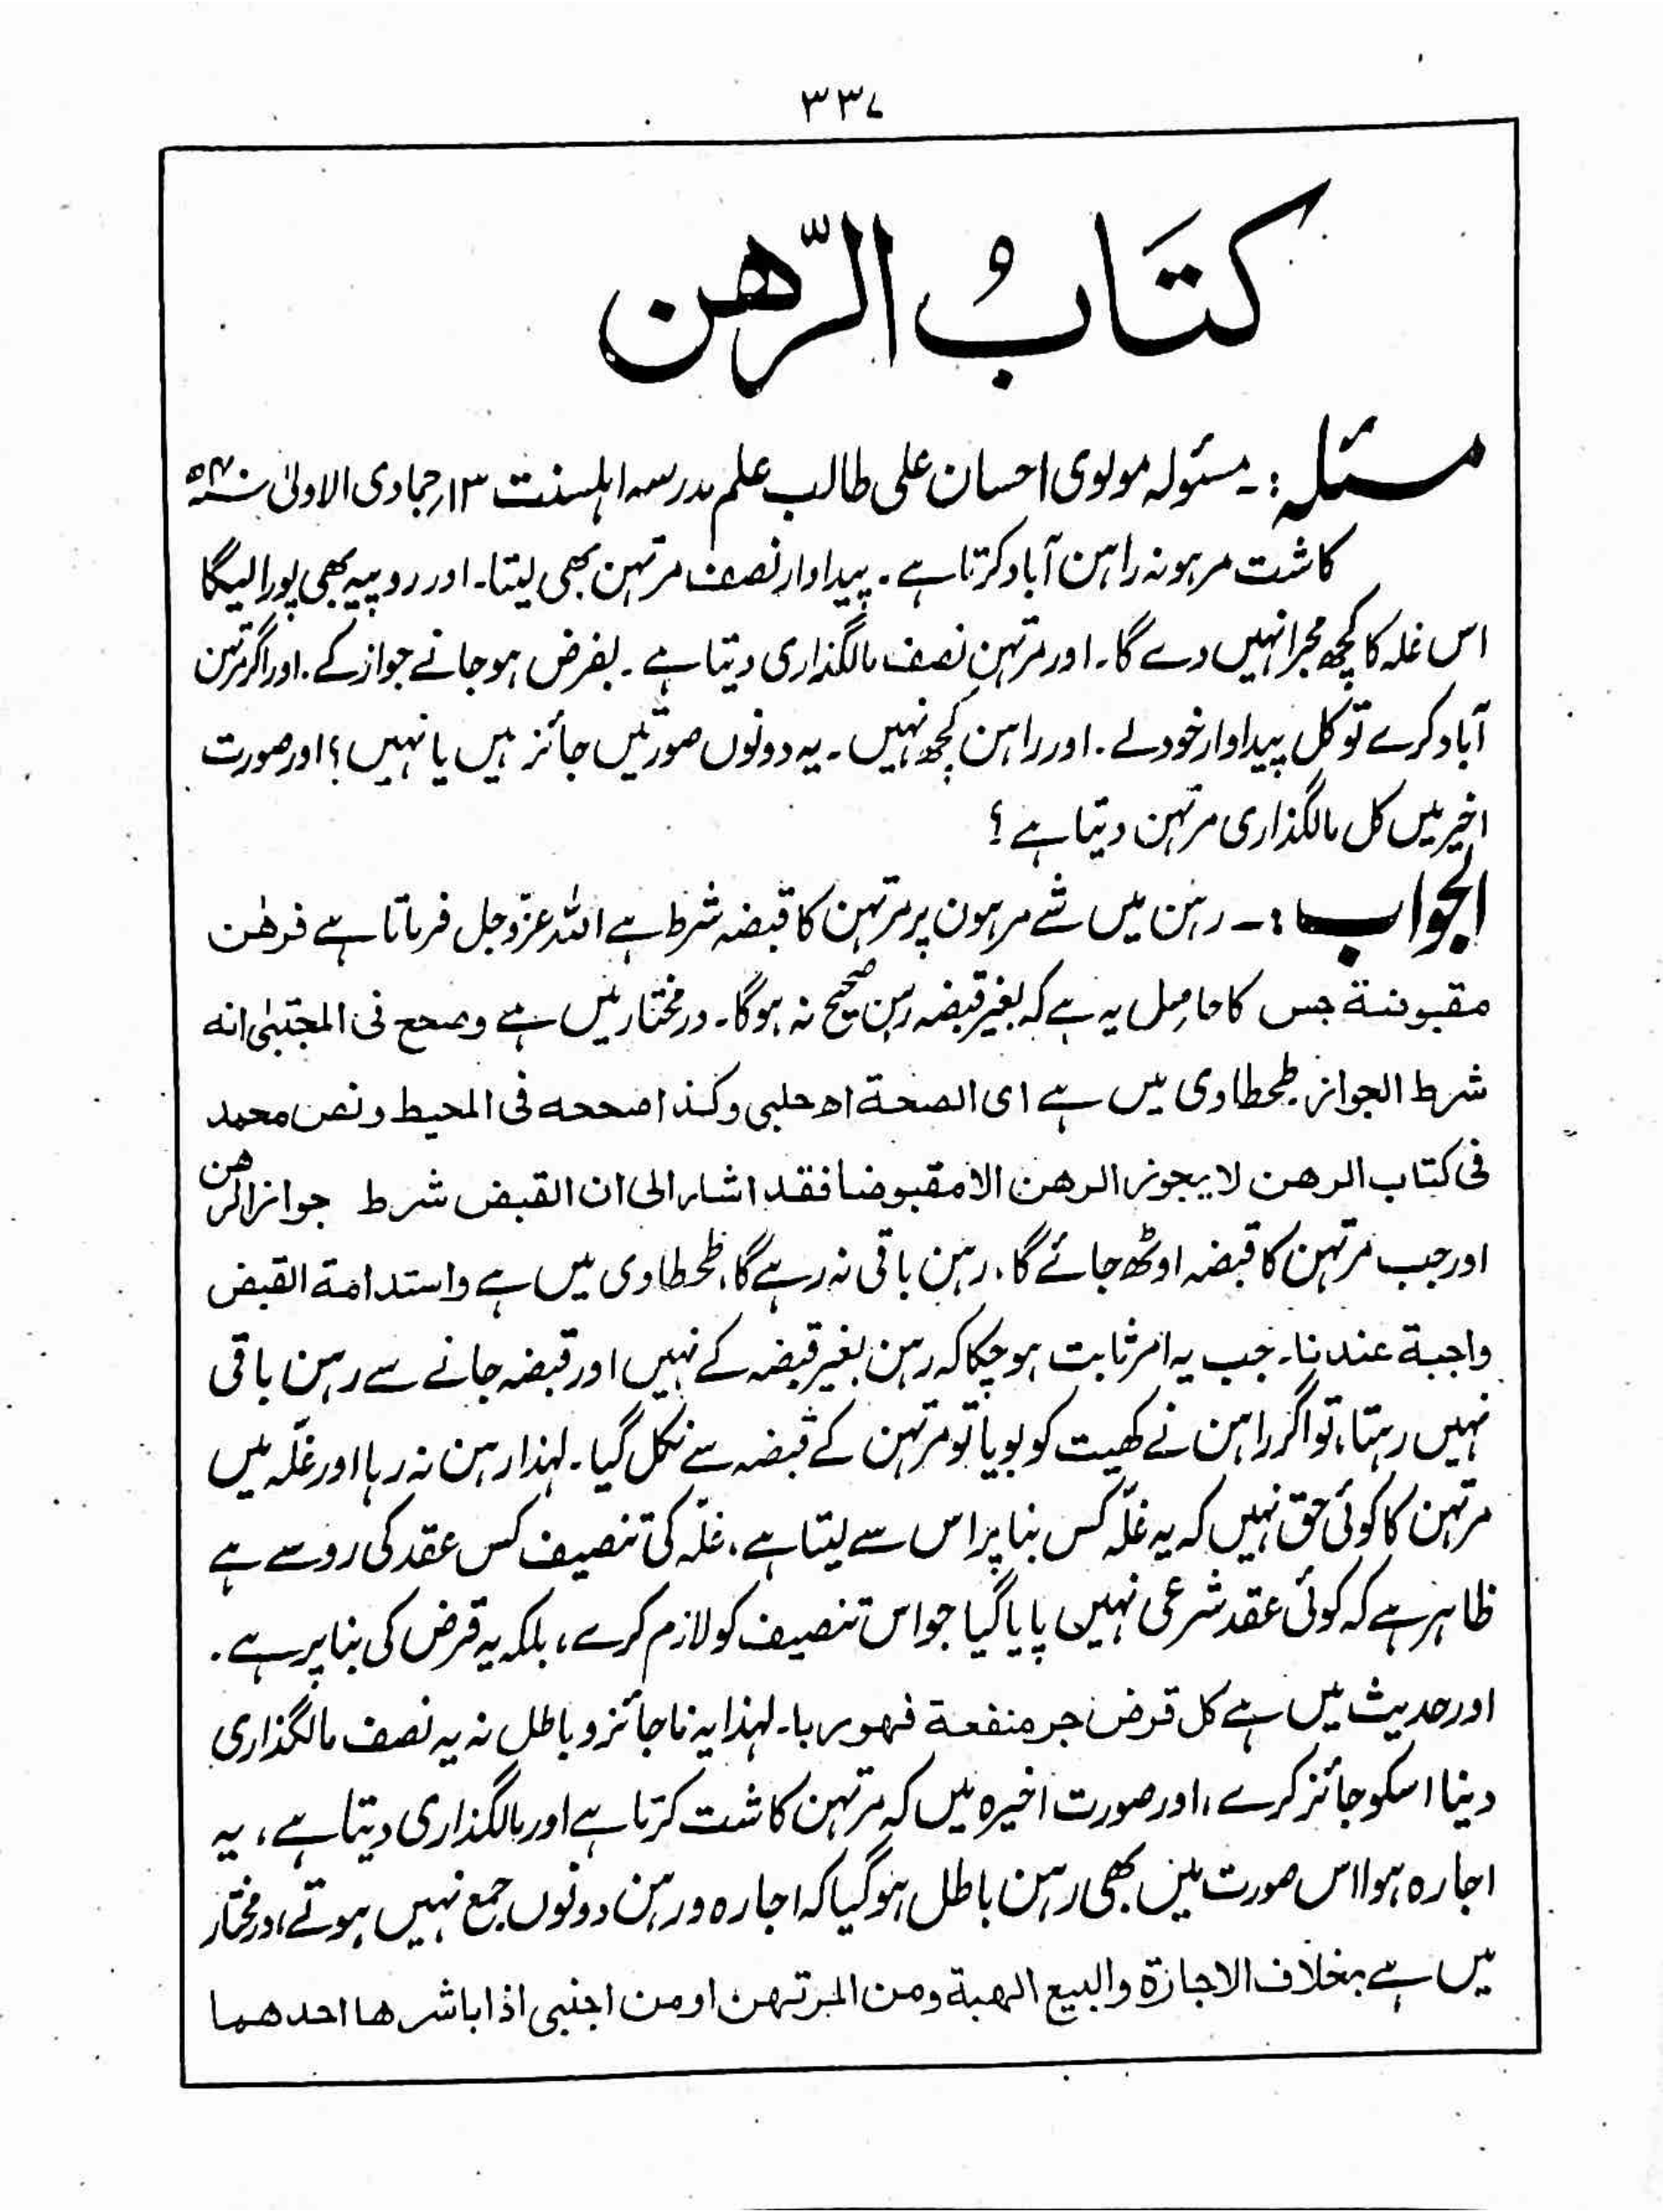 ۳۳۷
کتَابُ الرّھن
مسئلہ :۔ مسئولہ مولوی احسان علی طالب علم مدرسہ اہلسنت ۱۳؍جمادی الاولیٰ
کاشت مرہونہ راہن آباد کرتا ہے۔ پیداوار نصف مرتہن بھی لیتا۔ اور روپیہ بھی پورا لیگا
اس غلہ کا کچھ مجرا نہیں دے گا۔ اور مرتہن نصف مالگذاری دیتا ہے۔ بفرض ہوجانے جواز کے۔ اور اگر مرتہن
آباد کرے تو کل پیداوار خود لے۔ اور راہن کچھ نہیں۔ یہ دونوں صورتیں جائز ہیں یا نہیں؟ اور صورت
اخیر میں کل مالگذاری مرتہن دیتا ہے؟
الجواب :۔ رہن میں شے مرہون پر مرتہن کا قبضہ شرط ہے اللہ عزّوجل فرماتا ہے فرھٰن
مقبوضة جس کا حاصل یہ ہے کہ بغیر قبضہ رہن صحیح نہ ہوگا۔ درمختار میں ہے وصحح فی المجتبیٰ انه
شرط الجواز۔ طحطاوی میں ہے ای الصحة اھ حلبی وکذا صححه فی المحیط ونص محمد
فی کتاب الرھن لا یجوز الرھن الا مقبوضا فقد اشار الی ان القبض شرط جواز الرھن
اور جب مرتہن کا قبضہ اوٹھ جائے گا، رہن باقی نہ رہے گا، طحطاوی میں ہے واستدامة القبض
واجبة عندنا۔ جب یہ امر ثابت ہوچکا کہ رہن بغیر قبضہ کے نہیں اور قبضہ جانے سے رہن باقی
نہیں رہتا، تو اگر راہن نے کھیت کو بویا تو مرتہن کے قبضہ سے نکل گیا۔ لہذا رہن نہ رہا اور غلّہ میں
مرتہن کا کوئی حق نہیں کہ یہ غلّہ کس بنا پر اس سے لیتا ہے، غلّہ کی تنصیف کس عقد کی رو سے ہے
ظاہر ہے کہ کوئی عقد شرعی نہیں پایا گیا جو اس تنصیف کو لازم کرے، بلکہ یہ قرض کی بنا پر ہے۔
اور حدیث میں ہے کل قرض جر منفعة فھو ربا۔ لہذا یہ ناجائز و باطل نہ یہ نصف مالگذاری
دینا اسکو جائز کرے، اور صورت اخیرہ میں کہ مرتہن کاشت کرتا ہے اور مالگذاری دیتا ہے، یہ
اجارہ ہوا اس صورت میں بھی رہن باطل ہوگیا کہ اجارہ و رہن دونوں جمع نہیں ہوتے، درمختار
میں ہے بخلاف الاجازة والبیع الھبة ومن المرتھن او من اجنبی اذا باشرھا احدھما